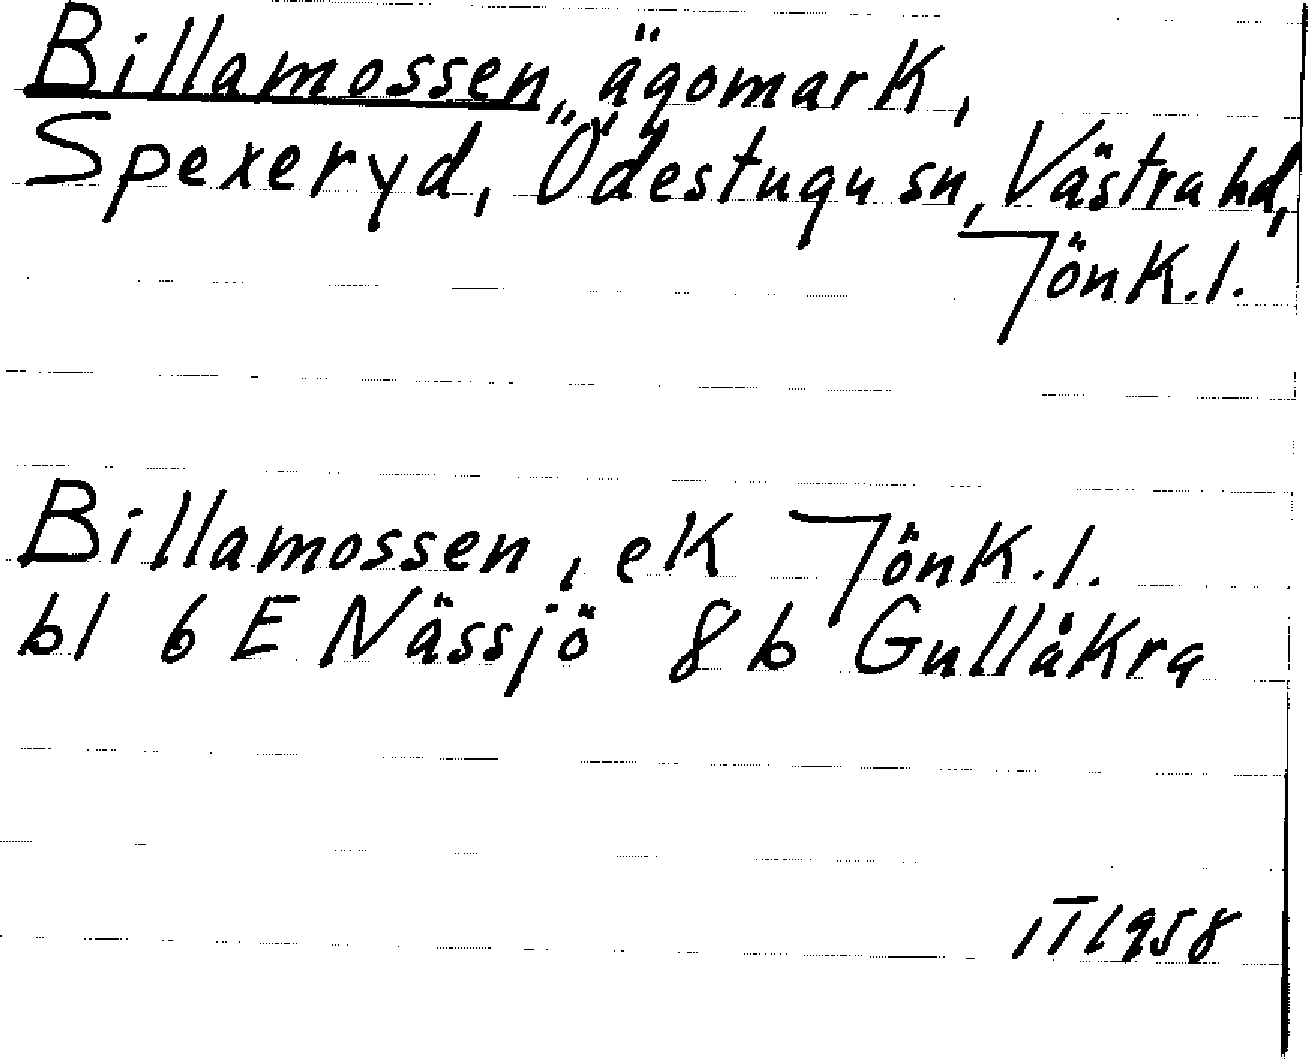 Billamossen, ägomark,
Spexeryd, Ödestugu sn, Västra hd,
Jönk.l.
Billamossen, ek Jönk.l.
bl 6 E Nässjö 8 b Gullåkra
IT 1958